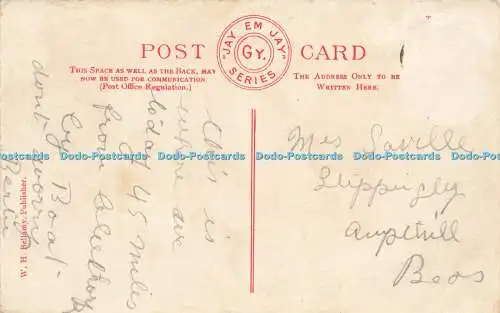 POST CARD
"JAY EM JAY" SERIES
GY.
THIS SPACE AS WELL AS THE BACK, MAY
NOW BE USED FOR COMMUNICATION.
(Post Office Regulation.)
THE ADDRESS ONLY TO BE
WRITTEN HERE.
this is
where we
today 45 miles
from Cleethorp
By Boat
dont worry
Bertie
W. H. Bellamy, Publisher.
Mrs Saville
Slippingly
Ampthill
Beds
Dodo-Postcards Dodo-Postcards Dodo-Postcards Dodo-Postcards Dodo-Postcards